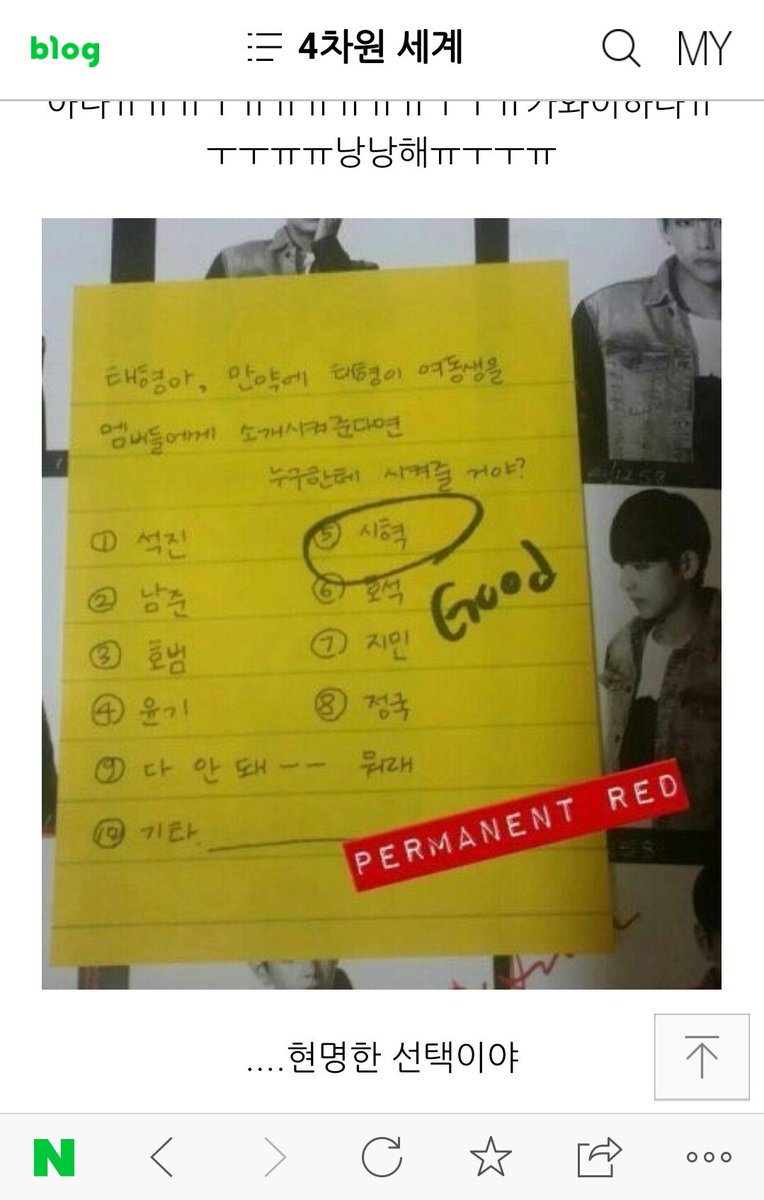 blog
4차원 세계
MY
ㅜㅜㅠㅠ낭낭해ㅠㅜㅜㅠ
태형아, 만약에 태형이 여동생을
멤버들에게 소개시켜준다면
누구한테 시켜줄 거야?
① 석진
⑤ 시혁
② 남준
⑥ 호석
Good
③ 호범
⑦ 지민
④ 윤기
⑧ 정국
⑨ 다 안 돼-- 뭐래
⑩ 기타
PERMANENT RED
....현명한 선택이야
N